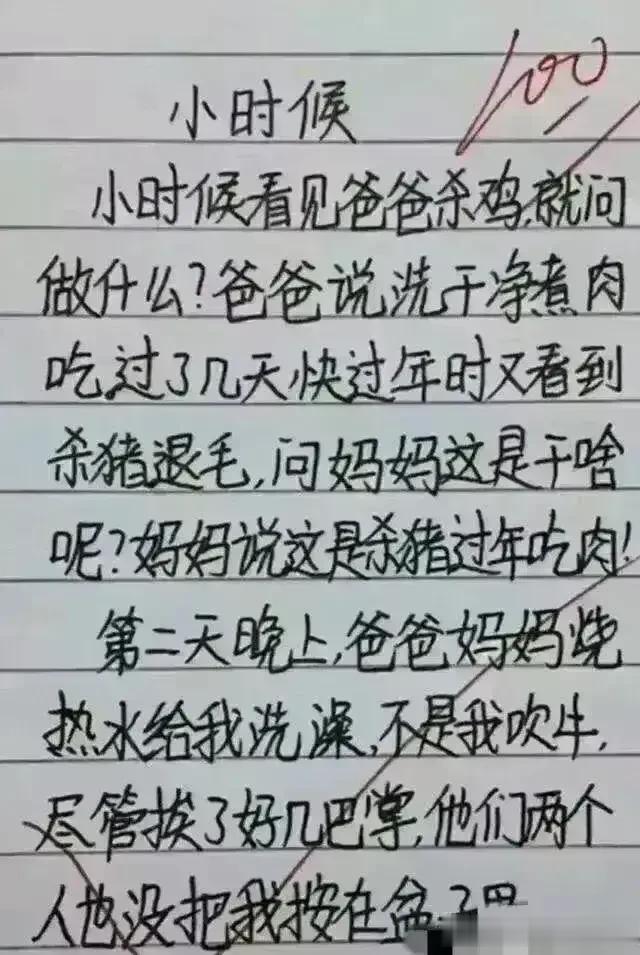 100
小时候
小时候看见爸爸杀鸡,就问
做什么?爸爸说洗干净煮肉
吃,过了几天,快过年时又看到
杀猪退毛,问妈妈这是干啥
呢?妈妈说这是杀猪过年吃肉!
第二天晚上,爸爸妈妈烧
热水给我洗澡,不是我吹牛,
尽管挨了好几巴掌,他们两个
人也没把我按在盆